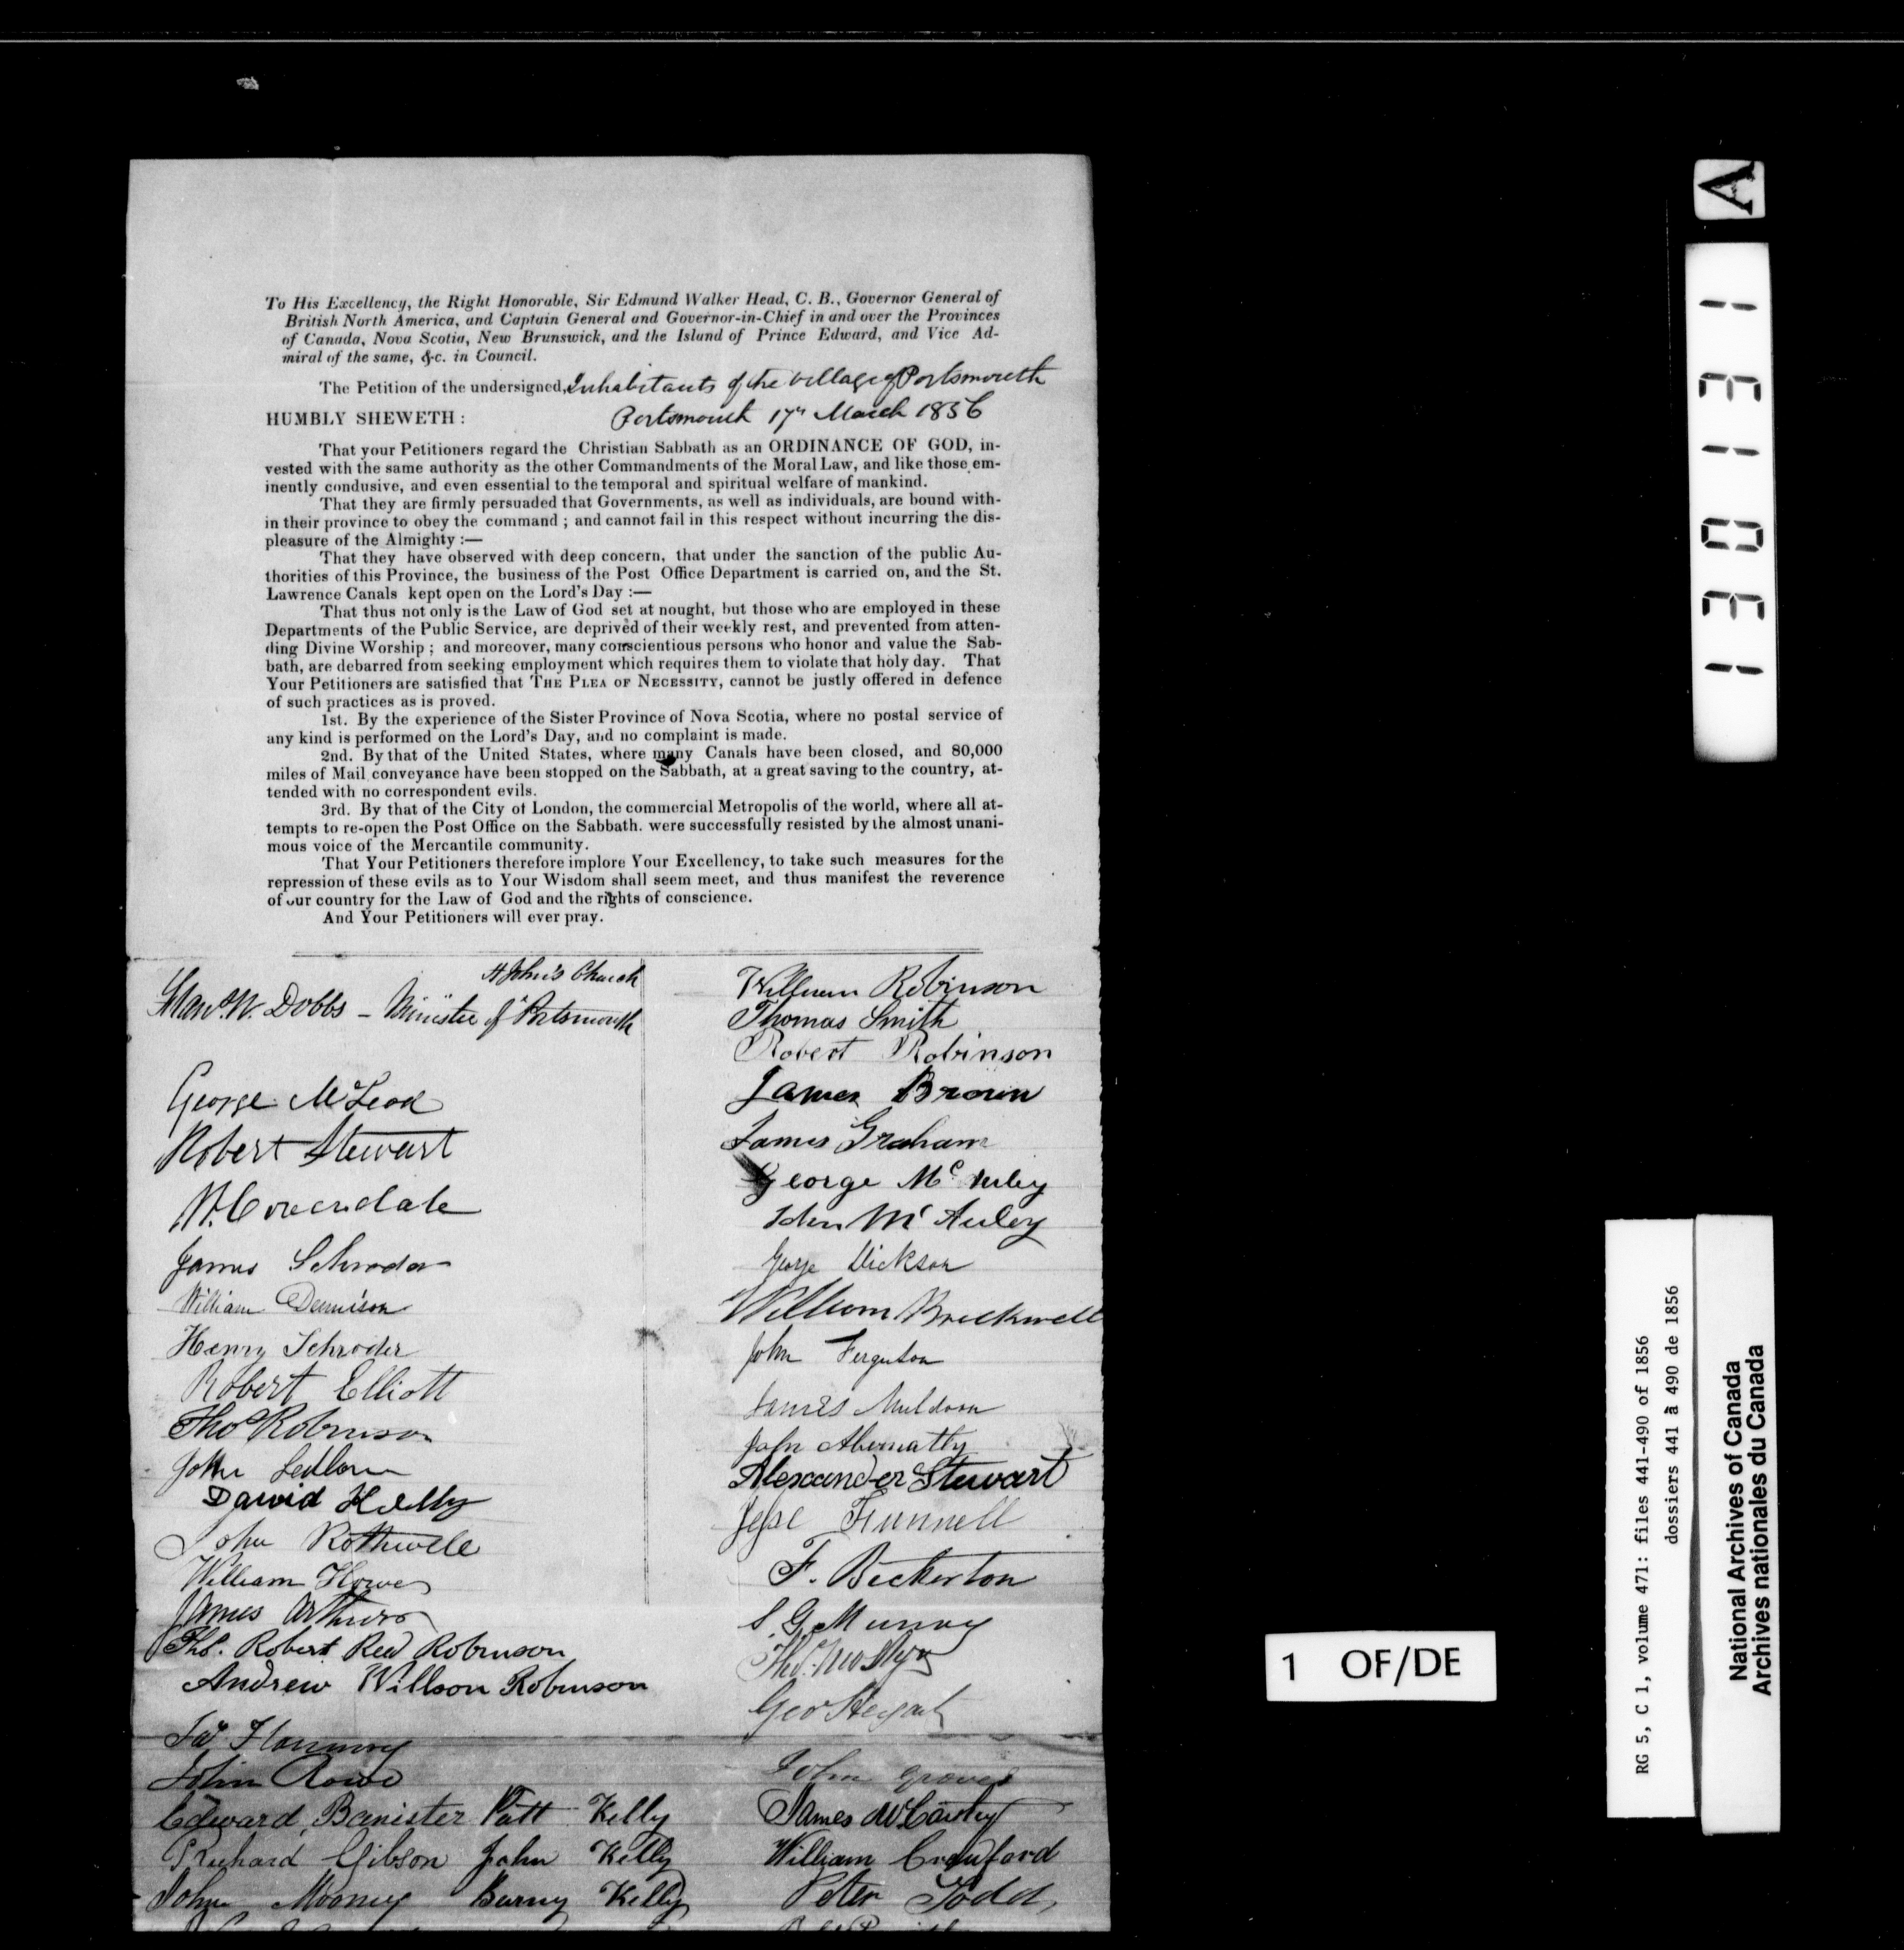 To His Excellency, the Right Honorable, Sir Edmund Walker Head, C. B., Governor General of
British North America, and Captain General and Governor-in-Chief in and over the Provinces
of Canada, Nova Scotia, New Brunswick, and the Island of Prince Edward, and Vice Ad-
miral of the same, &c. in Council.
The Petition of the undersigned, Inhabitants of the village of Portsmouth
HUMBLY SHEWETH: Portsmouth 17th March 1856
That your Petitioners regard the Christian Sabbath as an ORDINANCE OF GOD, in-
vested with the same authority as the other Commandments of the Moral Law, and like those em-
inently condusive, and even essential to the temporal and spiritual welfare of mankind.
That they are firmly persuaded that Governments, as well as individuals, are bound with-
in their province to obey the command ; and cannot fail in this respect without incurring the dis-
pleasure of the Almighty :—
That they have observed with deep concern, that under the sanction of the public Au-
thorities of this Province, the business of the Post Office Department is carried on, and the St.
Lawrence Canals kept open on the Lord's Day :—
That thus not only is the Law of God set at nought, but those who are employed in these
Departments of the Public Service, are deprived of their weekly rest, and prevented from atten-
ding Divine Worship ; and moreover, many conscientious persons who honor and value the Sab-
bath, are debarred from seeking employment which requires them to violate that holy day. That
Your Petitioners are satisfied that THE PLEA OF NECESSITY, cannot be justly offered in defence
of such practices as is proved.
1st. By the experience of the Sister Province of Nova Scotia, where no postal service of
any kind is performed on the Lord's Day, and no complaint is made.
2nd. By that of the United States, where many Canals have been closed, and 80,000
miles of Mail conveyance have been stopped on the Sabbath, at a great saving to the country, at-
tended with no correspondent evils.
3rd. By that of the City of London, the commercial Metropolis of the world, where all at-
tempts to re-open the Post Office on the Sabbath. were successfully resisted by the almost unani-
mous voice of the Mercantile community.
That Your Petitioners therefore implore Your Excellency, to take such measures for the
repression of these evils as to Your Wisdom shall seem meet, and thus manifest the reverence
of our country for the Law of God and the rights of conscience.
And Your Petitioners will ever pray.
St John's Church
W. Dobbs - Minister of Portsmouth
George McLeod
Robert Stewart
W. Coverdale
James Schroder
William Dennison
Henry Schroder
Robert Elliott
Tho Robinson
John
David Kelly
John Rothwell
William Howe
James Arthurs
Tho. Robert Reed Robinson
Andrew Willson Robinson
Jas
John Rowe
Edward Banister Patt Kelly
Richard Gibson John Kelly
John Mooney Barny Kelly
William Robinson
Thomas Smith
Robert Robinson
James Brown
James Graham
George Mc Auley
John Mc Auley
George Dickson
William Breckwell
John Ferguson
James Muldoon
John Abernathy
Alexander Stewart
Jesse Funnell
F. Beckerton
S. G. Murray
Geo
John Groves
James McCauley
William Crawford
Peter Todd
A
1 E 1 0 E 1
1 OF/DE
RG 5, C 1, volume 471: files 441-490 of 1856
dossiers 441 à 490 de 1856
National Archives of Canada
Archives nationales du Canada